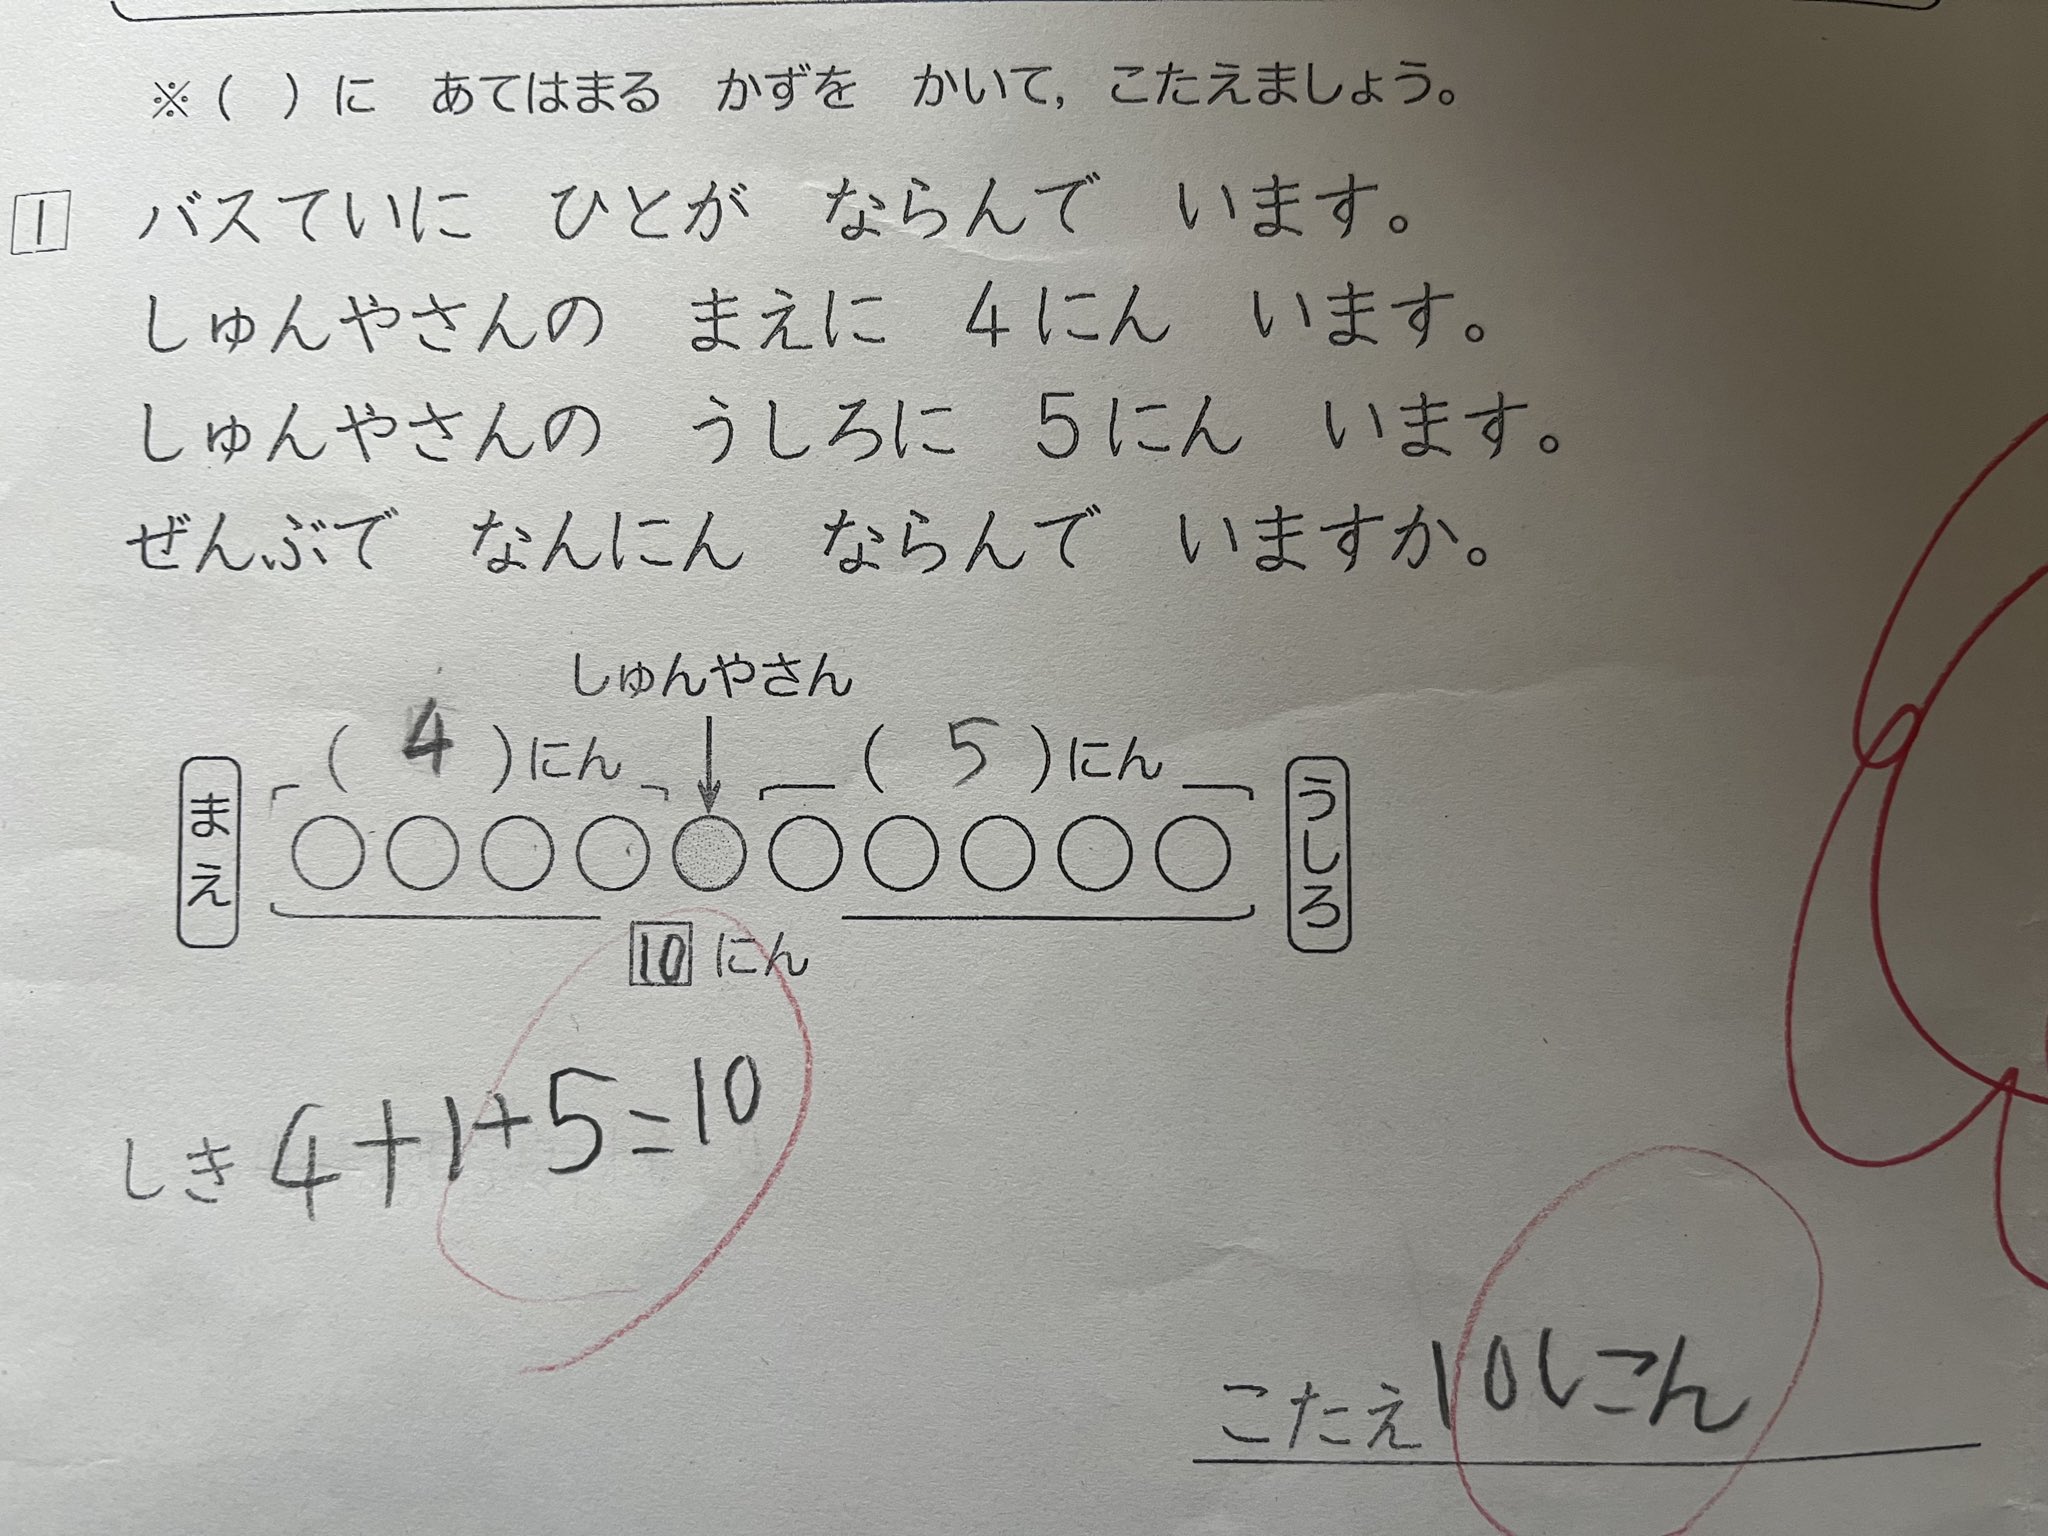 ※( )に あてはまる かずを かいて, こたえましょう。
1 バスていに ひとが ならんで います。
しゅんやさんの まえに 4にん います。
しゅんやさんの うしろに 5にん います。
ぜんぶで なんにん ならんで いますか。
しゅんやさん
(4)にん (5)にん
まえ うしろ
10にん
しき 4+1+5=10
こたえ 10にん